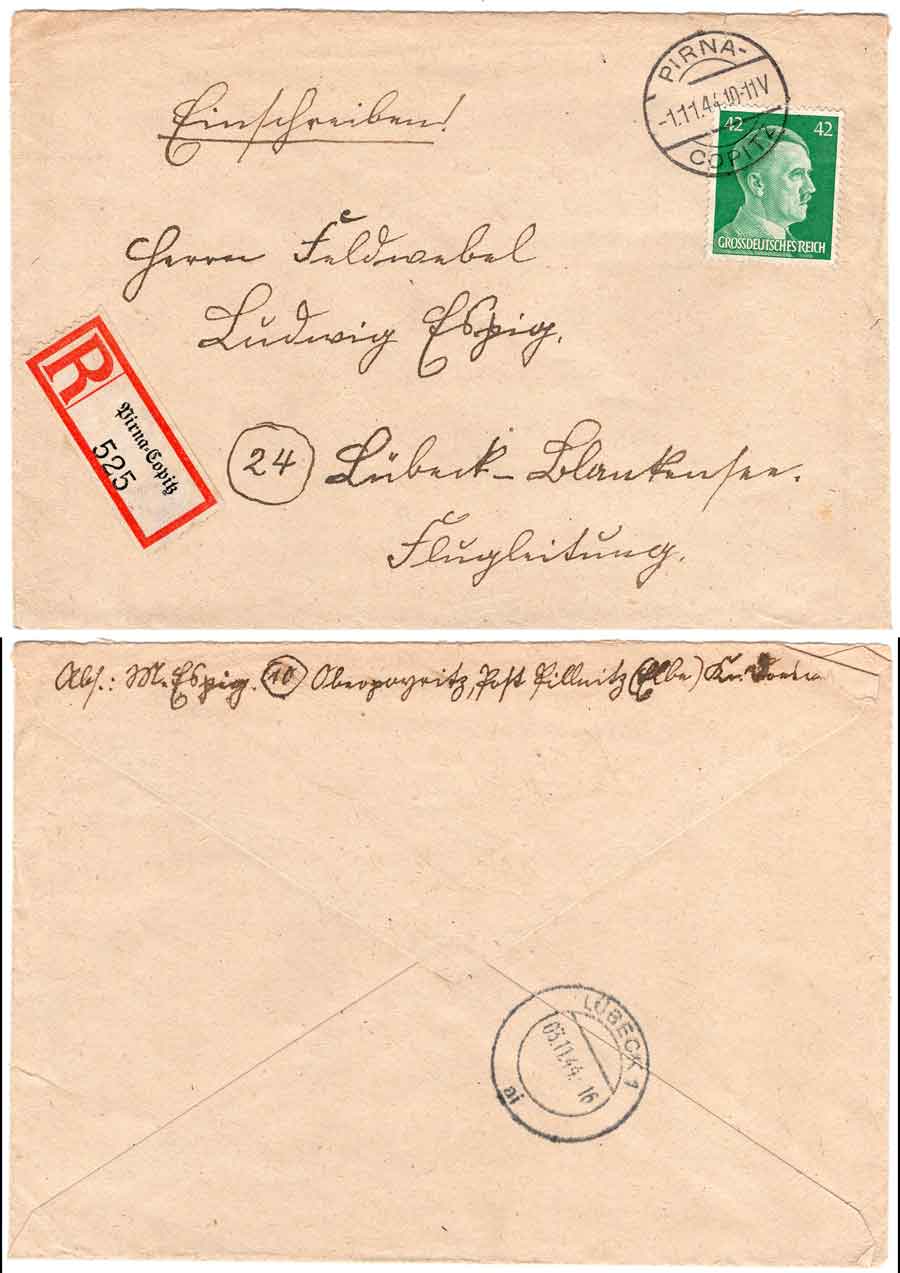 Einschreiben!
PIRNA-
-1.11.44.10-11V
COPITZ
42 42
GROSSDEUTSCHES REICH
Herrn Feldwebel
Ludwig Espig.
R
Pirna-Copitz
525
24 Lübeck-Blankensee.
Flugleitung.
Abs.: M. Espig. 10 Oberpoyritz, Post Pillnitz (Elbe) Kr.
LÜBECK 1
03.11.44. 16
ai